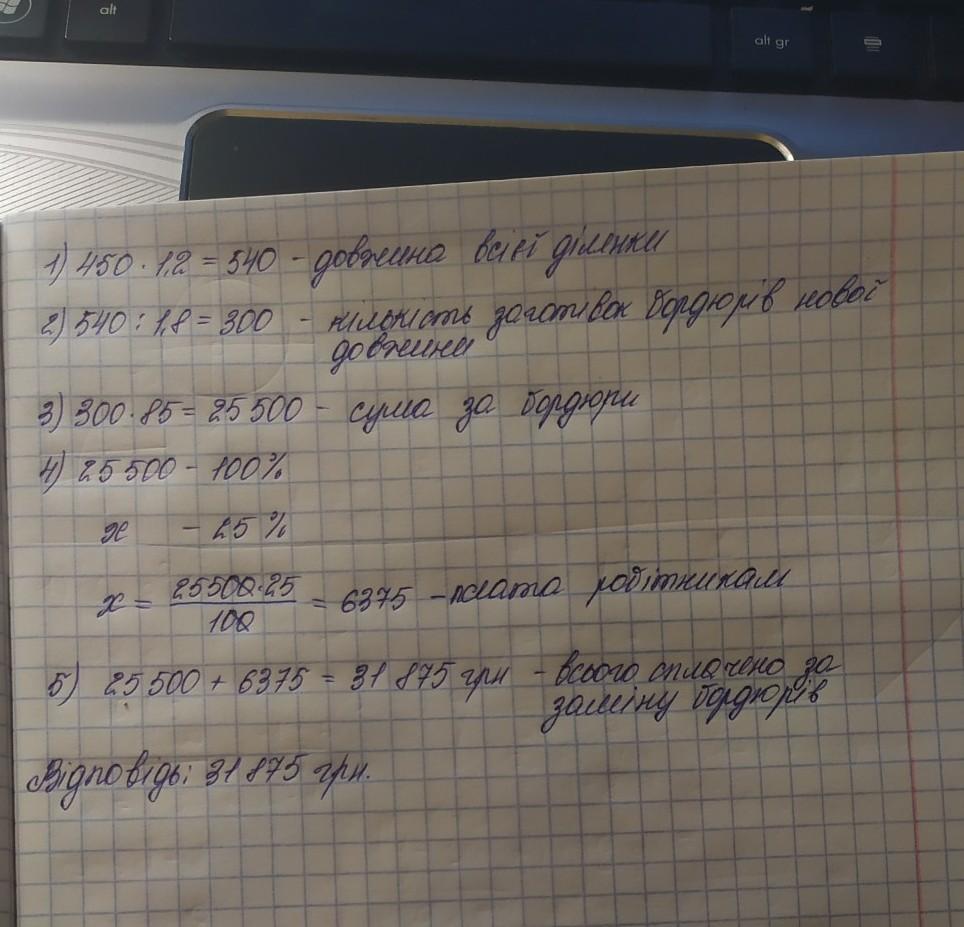 alt
alt gr
1) 450 · 1,2 = 540 - довжина всієї ділянки
2) 540 : 1,8 = 300 - кількість заготівок бордюрів нової
довжини
3) 300 · 85 = 25 500 - сума за бордюри
4) 25 500 - 100%
x - 25 %
x = 25500·25 / 100 = 6375 - плата робітникам
5) 25 500 + 6375 = 31 875 грн - всього сплачено за
заміну бордюрів
Відповідь: 31 875 грн.